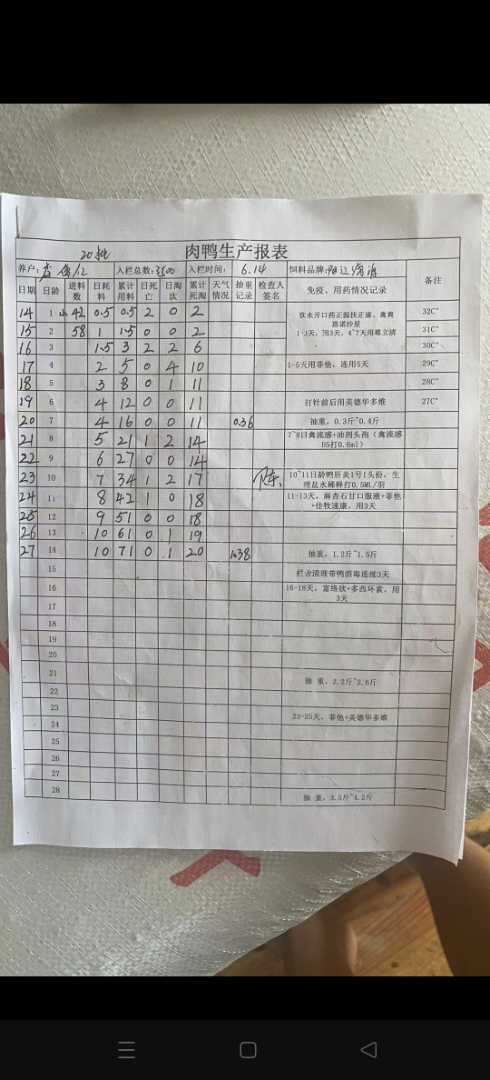 20批 肉鸭生产报表
养户: 入栏总数: 3500 入栏时间: 6.14 饲料品牌:
日期 日龄 进料数 日耗料 累计用料 日死亡 日淘汰 累计死淘 天气情况 抽重记录 检查人签名 免疫、用药情况记录 备注
14 1 42 0.5 0.5 2 0 2 32C°
饮水开口药正源扶正康、禽禽
15 2 58 1 1.5 0 0 2 1-3天,用3天,4~7天用 31C°
16 3 1.5 3 2 2 6 30C°
17 4 2 5 0 4 10 1-5天用菲他,连用5天 29C°
18 5 3 8 0 1 11 28C°
19 6 4 12 0 0 11 打针前后用美德华多维 27C°
20 7 4 16 0 0 11 0.36 抽重,0.3斤~0.4斤
21 8 5 21 1 2 14 7~8日禽流感+油剂头孢(禽流感H5打0.6ml)
22 9 6 27 0 0 14
23 10 7 34 1 2 17 10~11日龄鸭肝炎1号1头份,生理盐水稀释打0.5ML/羽
24 11 8 42 1 0 18 11-13天,麻杏石甘口服液+菲他+佳牧速康,用3天
25 12 9 51 0 0 18
26 13 10 61 0 1 19
27 14 10 71 0 1 20 1.38 抽重,1.2斤~1.5斤
15 栏舍清理带鸭消毒连续3天
16 16-18天,富珞欣+多西环素,用3天
17
18
19
20
21 抽 重,2.2斤~2.6斤
22
23 23-25天,菲他+美德华多维
24
25
26
27
28 抽 重,3.5斤~4.2斤